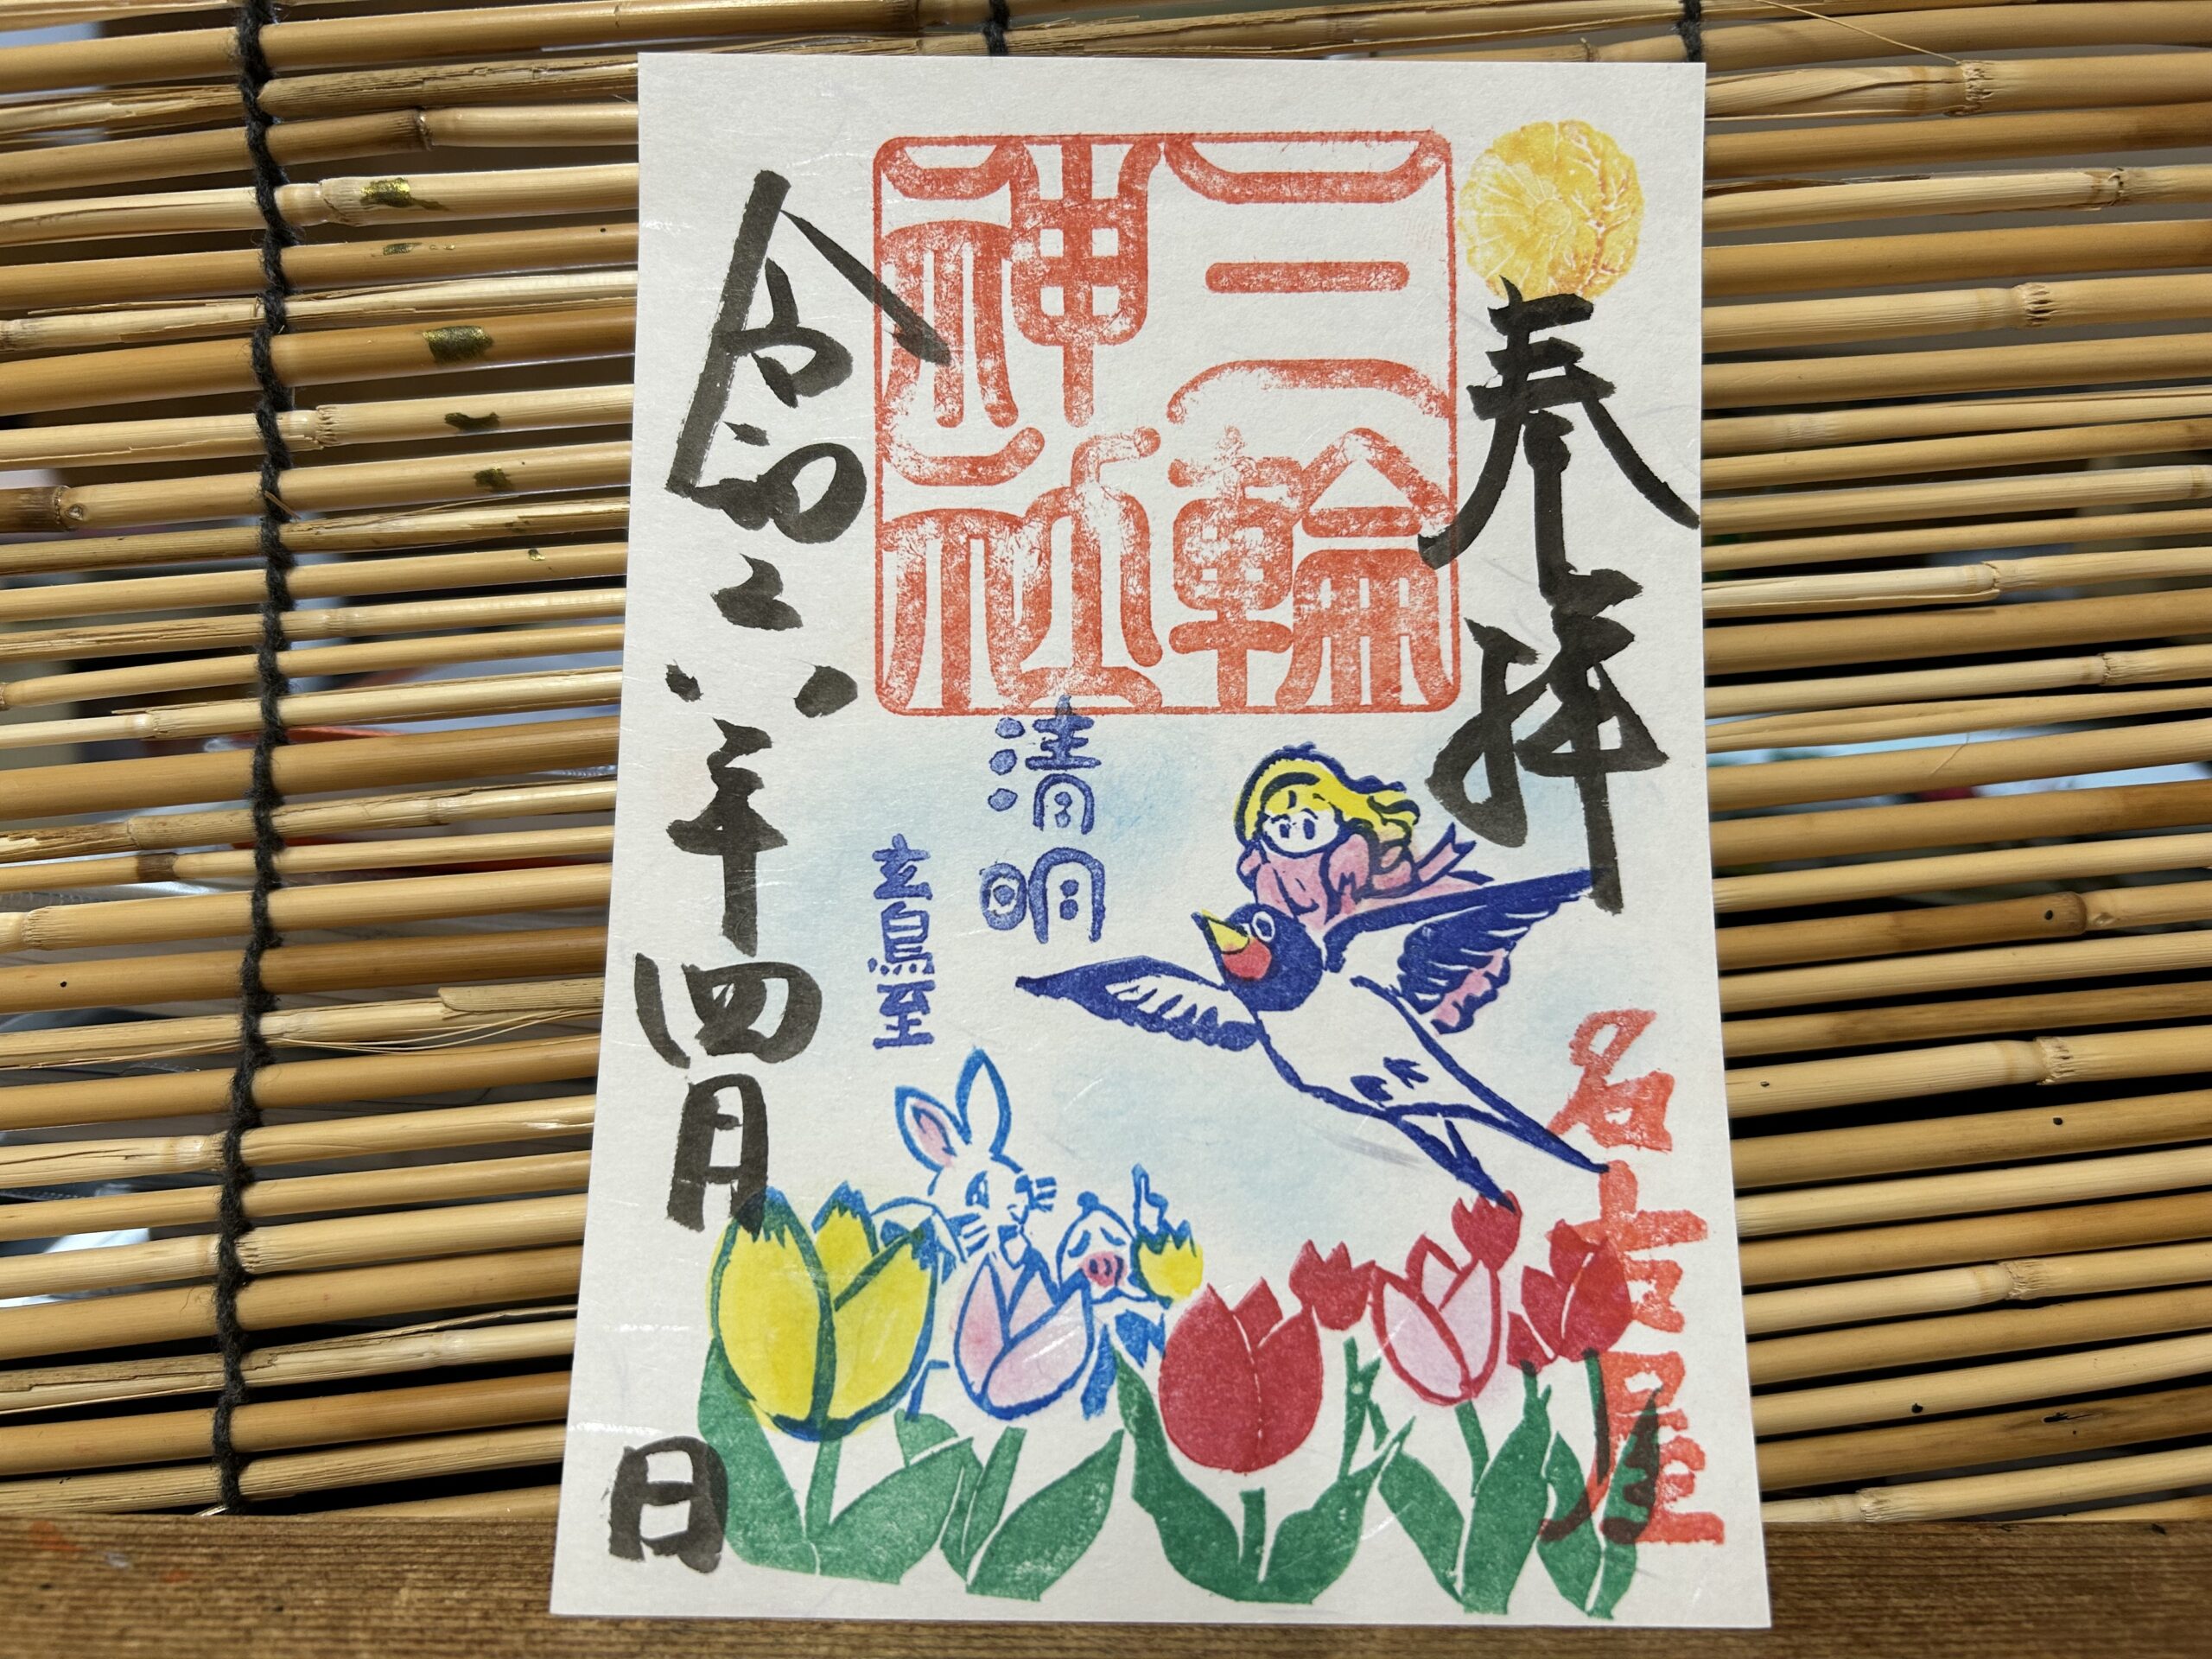 奉拝
名古屋
三輪
神社
清明
玄鳥至
令和六年四月
日